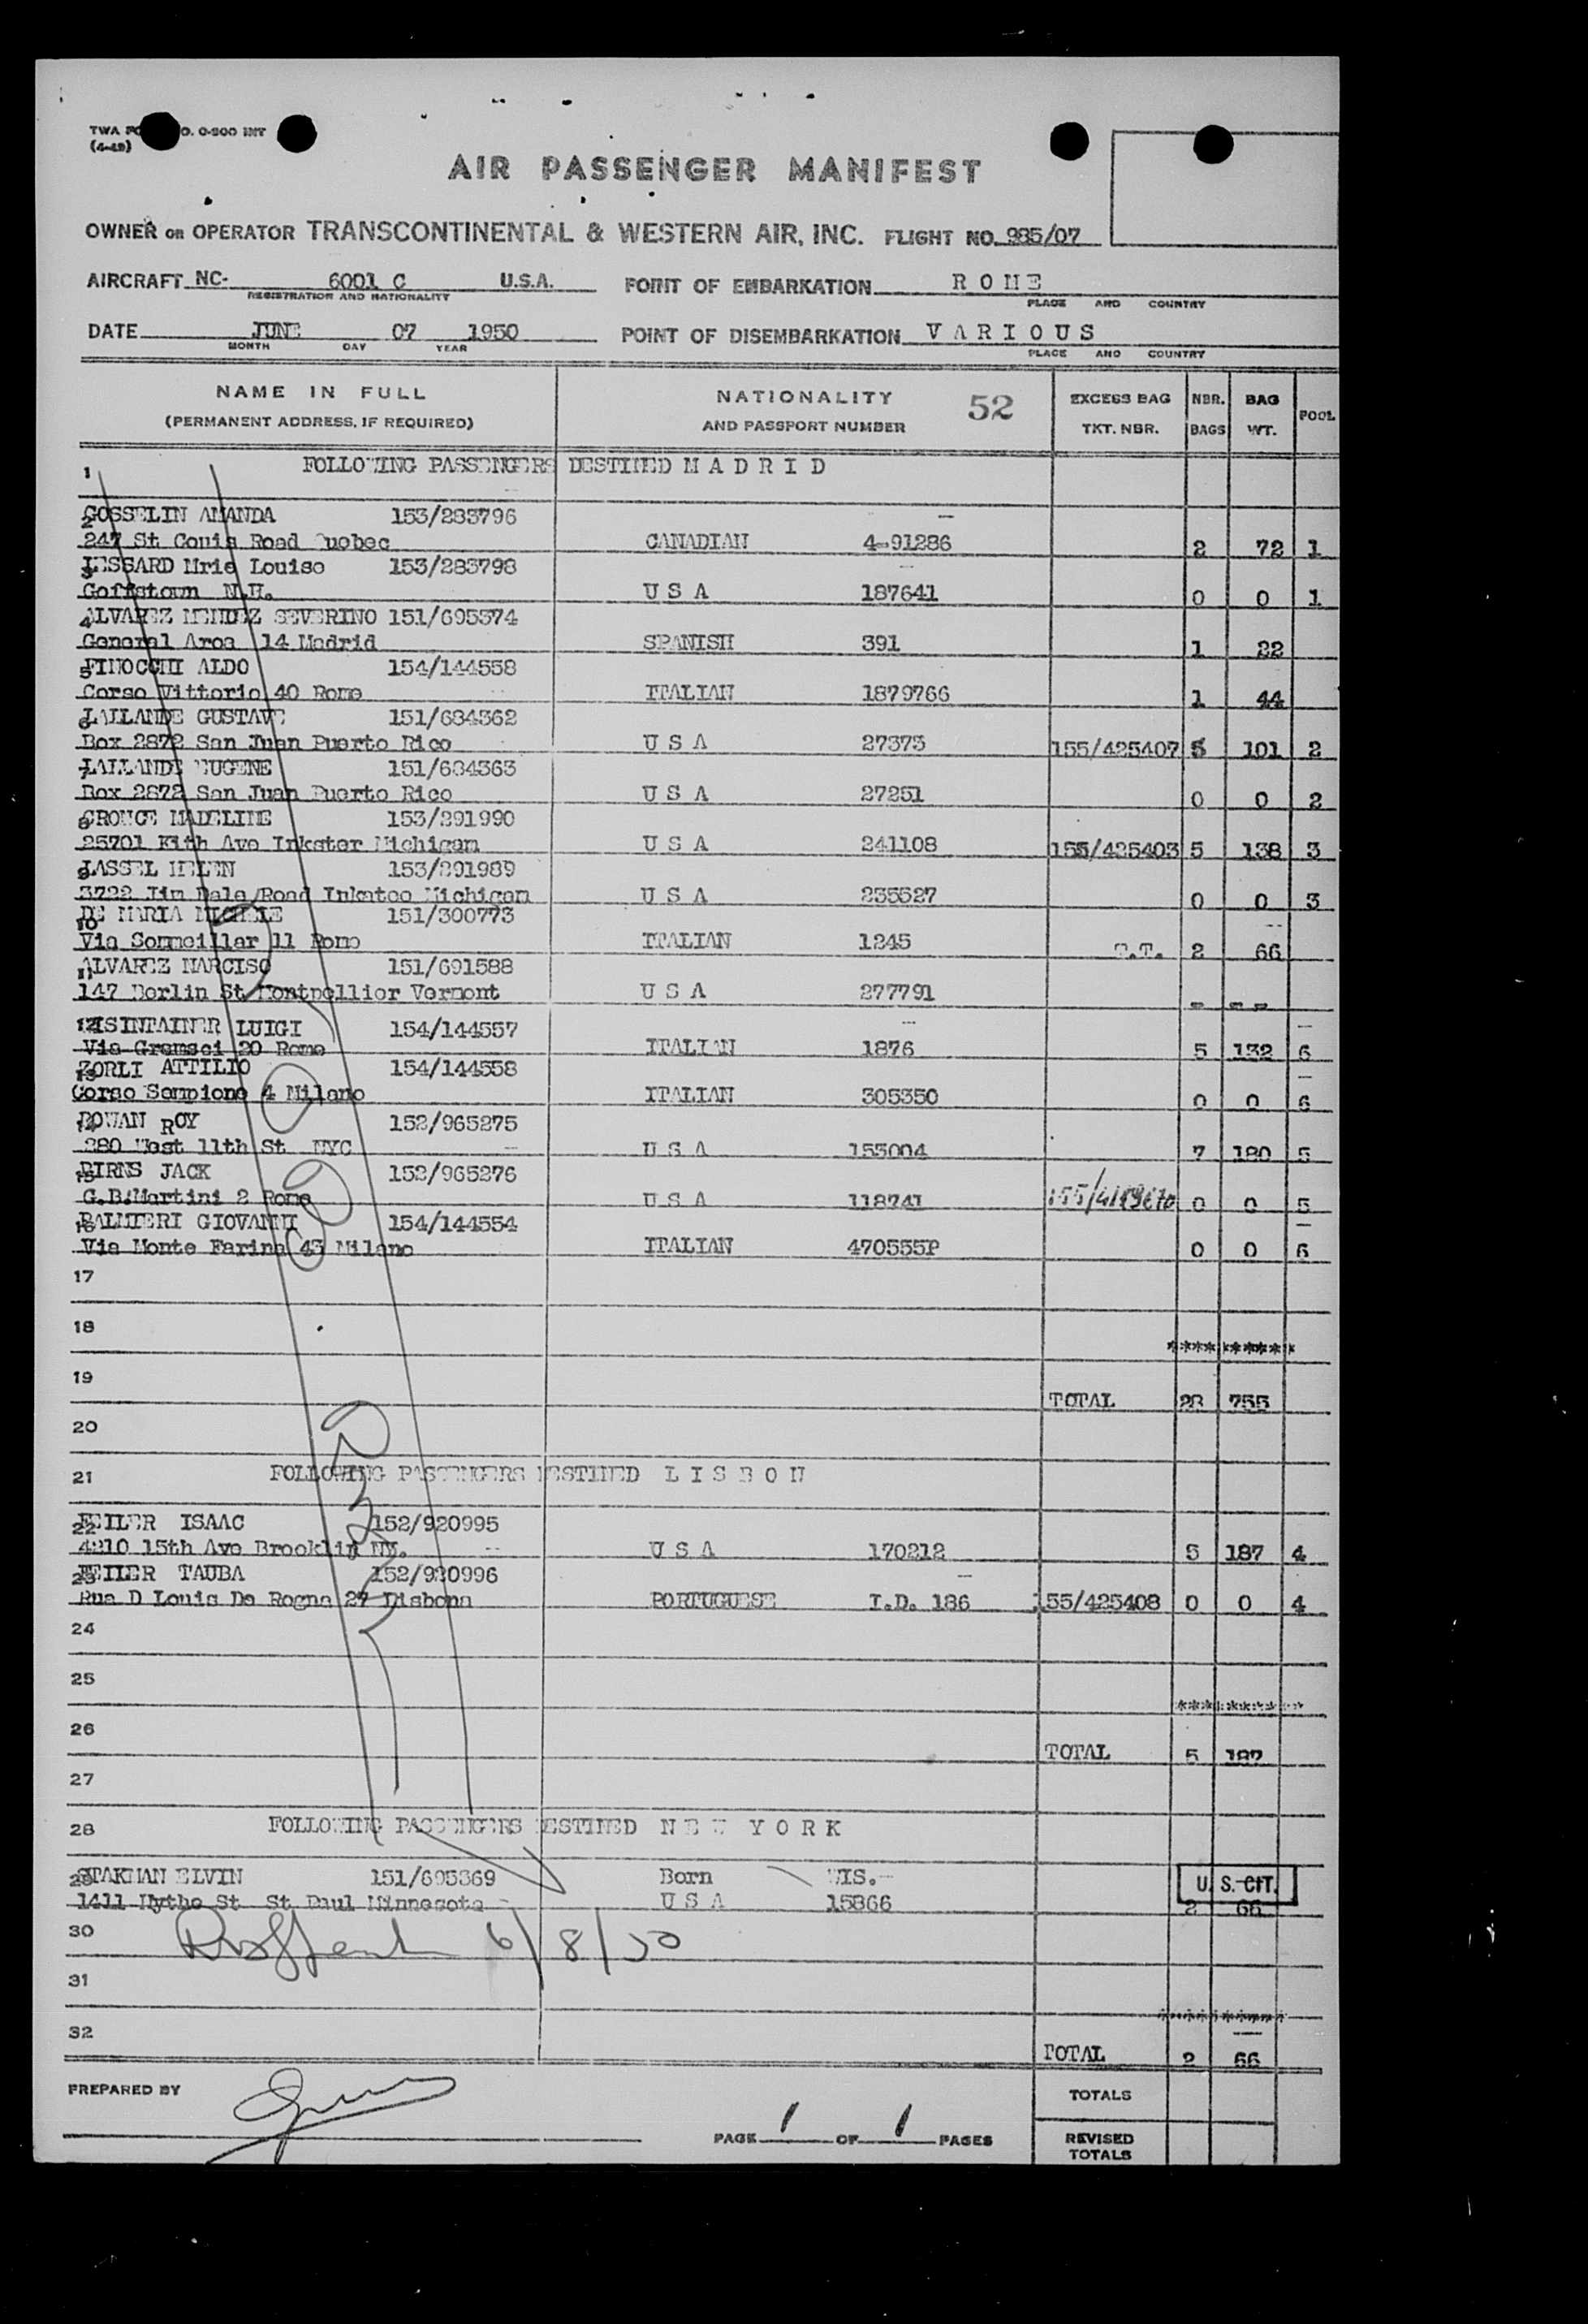 TWA FO O. O-500 INT
(4-49)
AIR PASSENGER MANIFEST
OWNER OR OPERATOR TRANSCONTINENTAL & WESTERN AIR, INC. FLIGHT NO. 985/07
AIRCRAFT NC- 6001 C U.S.A. POINT OF EMBARKATION R O M E
REGISTRATION AND NATIONALITY PLACE AND COUNTRY
DATE JUNE 07 1950 POINT OF DISEMBARKATION V A R I O U S
MONTH DAY YEAR PLACE AND COUNTRY
NAME IN FULL NATIONALITY 52 EXCESS BAG NBR. BAG POOL
(PERMANENT ADDRESS, IF REQUIRED) AND PASSPORT NUMBER TKT. NBR. BAGS WT.
1 FOLLOWING PASSENGERS DESTINED M A D R I D
2 GOSSELIN AMANDA 153/283796
247 St Couis Road Quebec CANADIAN 4-91286 2 72 1
3 LESSARD Mrie Louise 153/283798
Goffstown N.H. U S A 187641 0 0 1
4 ALVAREZ MENDEZ SEVERINO 151/695374
General Aroa 14 Madrid SPANISH 391 1 22
5 FINOCCHI ALDO 154/144558
Corso Vittorio 40 Rome ITALIAN 1879766 1 44
6 LALLANDE GUSTAVE 151/684362
Box 2872 San Juan Puerto Rico U S A 27373 155/425407 5 101 2
7 LALLANDE EUGENE 151/684363
Box 2872 San Juan Puerto Rico U S A 27251 0 0 2
8 CROUCE MADELINE 153/291990
25701 Kith Ave Inkster Michigan U S A 241108 155/425403 5 138 3
9 JASSEL HELEN 153/291989
3722 Jim Dale Road Inkatoo Michigan U S A 235527 0 0 3
10 DE MARIA MICHELE 151/300773
Via Sommeillar 11 Rome ITALIAN 1245 T.T. 2 66
11 ALVAREZ NARCISO 151/691588
147 Berlin St Montpellier Vermont U S A 277791 - - -
12 VISINTAINER LUIGI 154/144557
Via Gramsci 20 Rome ITALIAN 1876 5 132 6
13 ZORLI ATTILIO 154/144558
Corso Sempione 4 Milano ITALIAN 305350 0 0 6
14 ROWAN ROY 152/965275
280 West 11th St NYC U S A 153004 7 180 5
15 BIRNS JACK 152/965276
G.B.Martini 2 Rome U S A 118741 0 0 5
16 PALMIERI GIOVANNI 154/144554
Via Monte Farina 43 Milano ITALIAN 470555P 0 0 6
17
18 **********
19 TOTAL 28 755
20
21 FOLLOWING PASSENGERS DESTINED L I S B O N
22 FEILER ISAAC 152/920995
4210 15th Ave Brooklin NY. U S A 170212 5 187 4
23 FEILER TAUBA 152/920996
Rua D Louis De Rogna 27 Lisbona PORTUGUESE I.D. 186 155/425408 0 0 4
24
25 **********
26 TOTAL 5 187
27
28 FOLLOWING PASSENGERS DESTINED N E W Y O R K
29 STAKMAN ELVIN 151/695369 Born WIS. U. S. CIT.
1411 Hythe St St Paul Minnesota U S A 15866 2 66
30 6/8/50
31 **********
32 TOTAL 2 66
PREPARED BY TOTALS
PAGE 1 OF 1 PAGES REVISED TOTALS